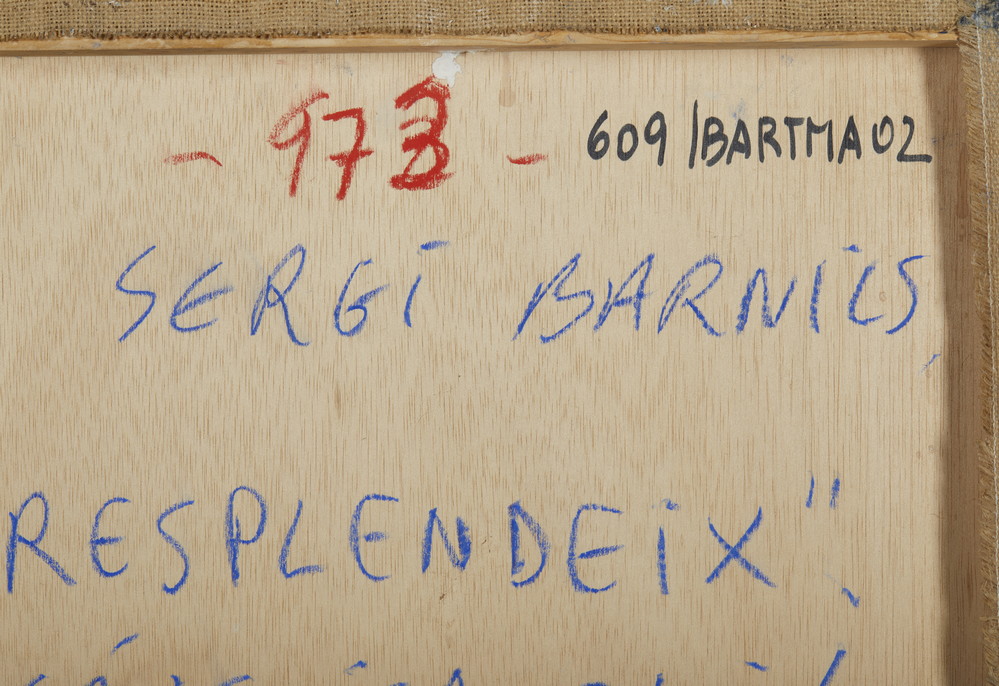 - 973 - 609/BARTMA02
SERGI BARNILS,
RESPLENDEIX".